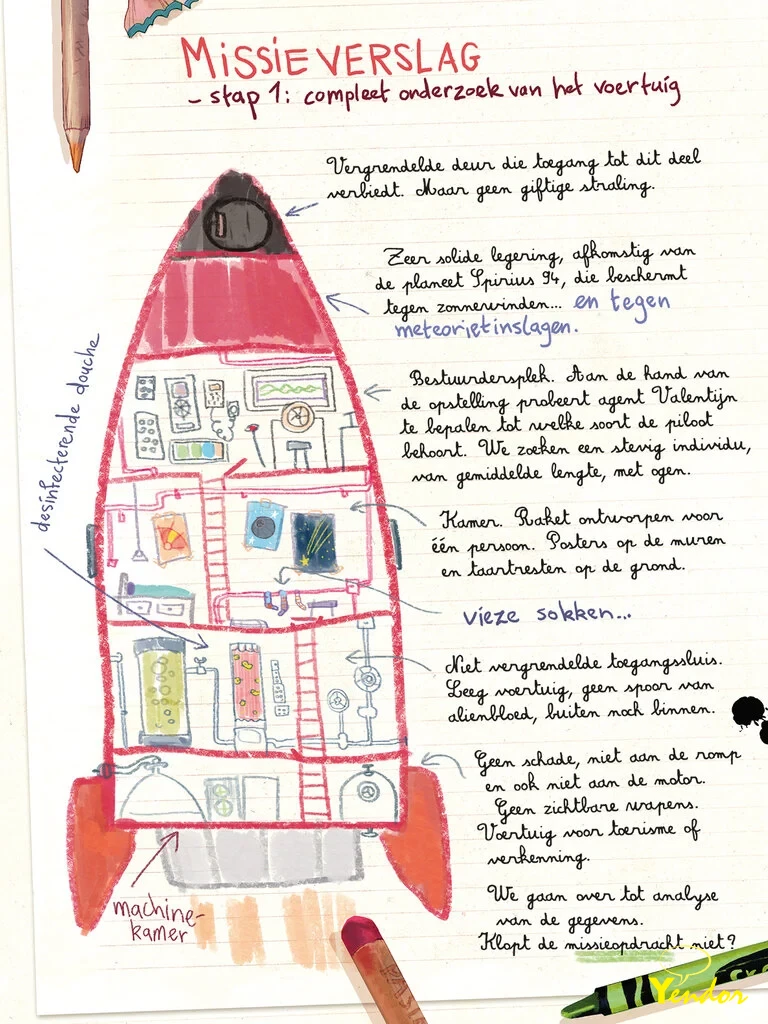 MISSIEVERSLAG
- stap 1: compleet onderzoek van het voertuig
Vergrendelde deur die toegang tot dit deel
verbiedt. Maar geen giftige straling.
Zeer solide legering, afkomstig van
de planeet Spirius 94, die beschermt
tegen zonnewinden... en tegen
meteorietinslagen.
desinfecterende douche
Bestuurdersplek. Aan de hand van
de opstelling probeert agent Valentijn
te bepalen tot welke soort de piloot
behoort. We zoeken een stevig individu,
van gemiddelde lengte, met ogen.
Kamer. Raket ontworpen voor
één persoon. Posters op de muren
en taartresten op de grond.
vieze sokken...
Niet vergrendelde toegangssluis.
Leeg voertuig, geen spoor van
alienbloed, buiten noch binnen.
Geen schade, niet aan de romp
en ook niet aan de motor.
Geen zichtbare wapens.
Voertuig voor toerisme of
verkenning.
machine-
kamer
We gaan over tot analyse
van de gegevens.
Klopt de missieopdracht niet?
Yendor